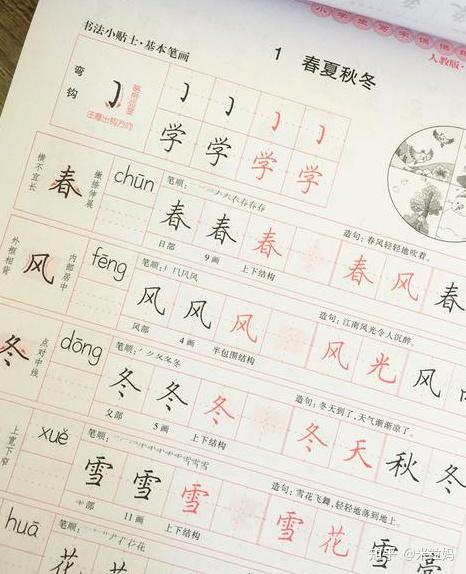 小学生写字课课练
人教版·
书法小贴士·基本笔画
1 春夏秋冬
弯钩
略带弧度
注意出钩方向
学 学 学 学
横不宜长
春
撇捺伸展
chūn
笔顺:
春 春 春
日部 9画 上下结构
造句:春风轻轻地吹着。
春 风 春
外框相背
风
内部居中
fēng
笔顺:
风 风 风
风部 4画 半包围结构
造句:江南风光令人沉醉。
风 光 风
冬
点对中线
dōng
笔顺:
冬 冬 冬
夂部 5画 上下结构
造句:冬天到了,天气渐渐凉了。
冬 天 秋 冬
上宽下窄
xuě
笔顺:
雪 雪 雪
部 11画 上下结构
造句:雪花飞舞,轻轻地落到地上。
雪 花 雪 亮
huā
笔顺:
花 花
知乎 @米豆妈